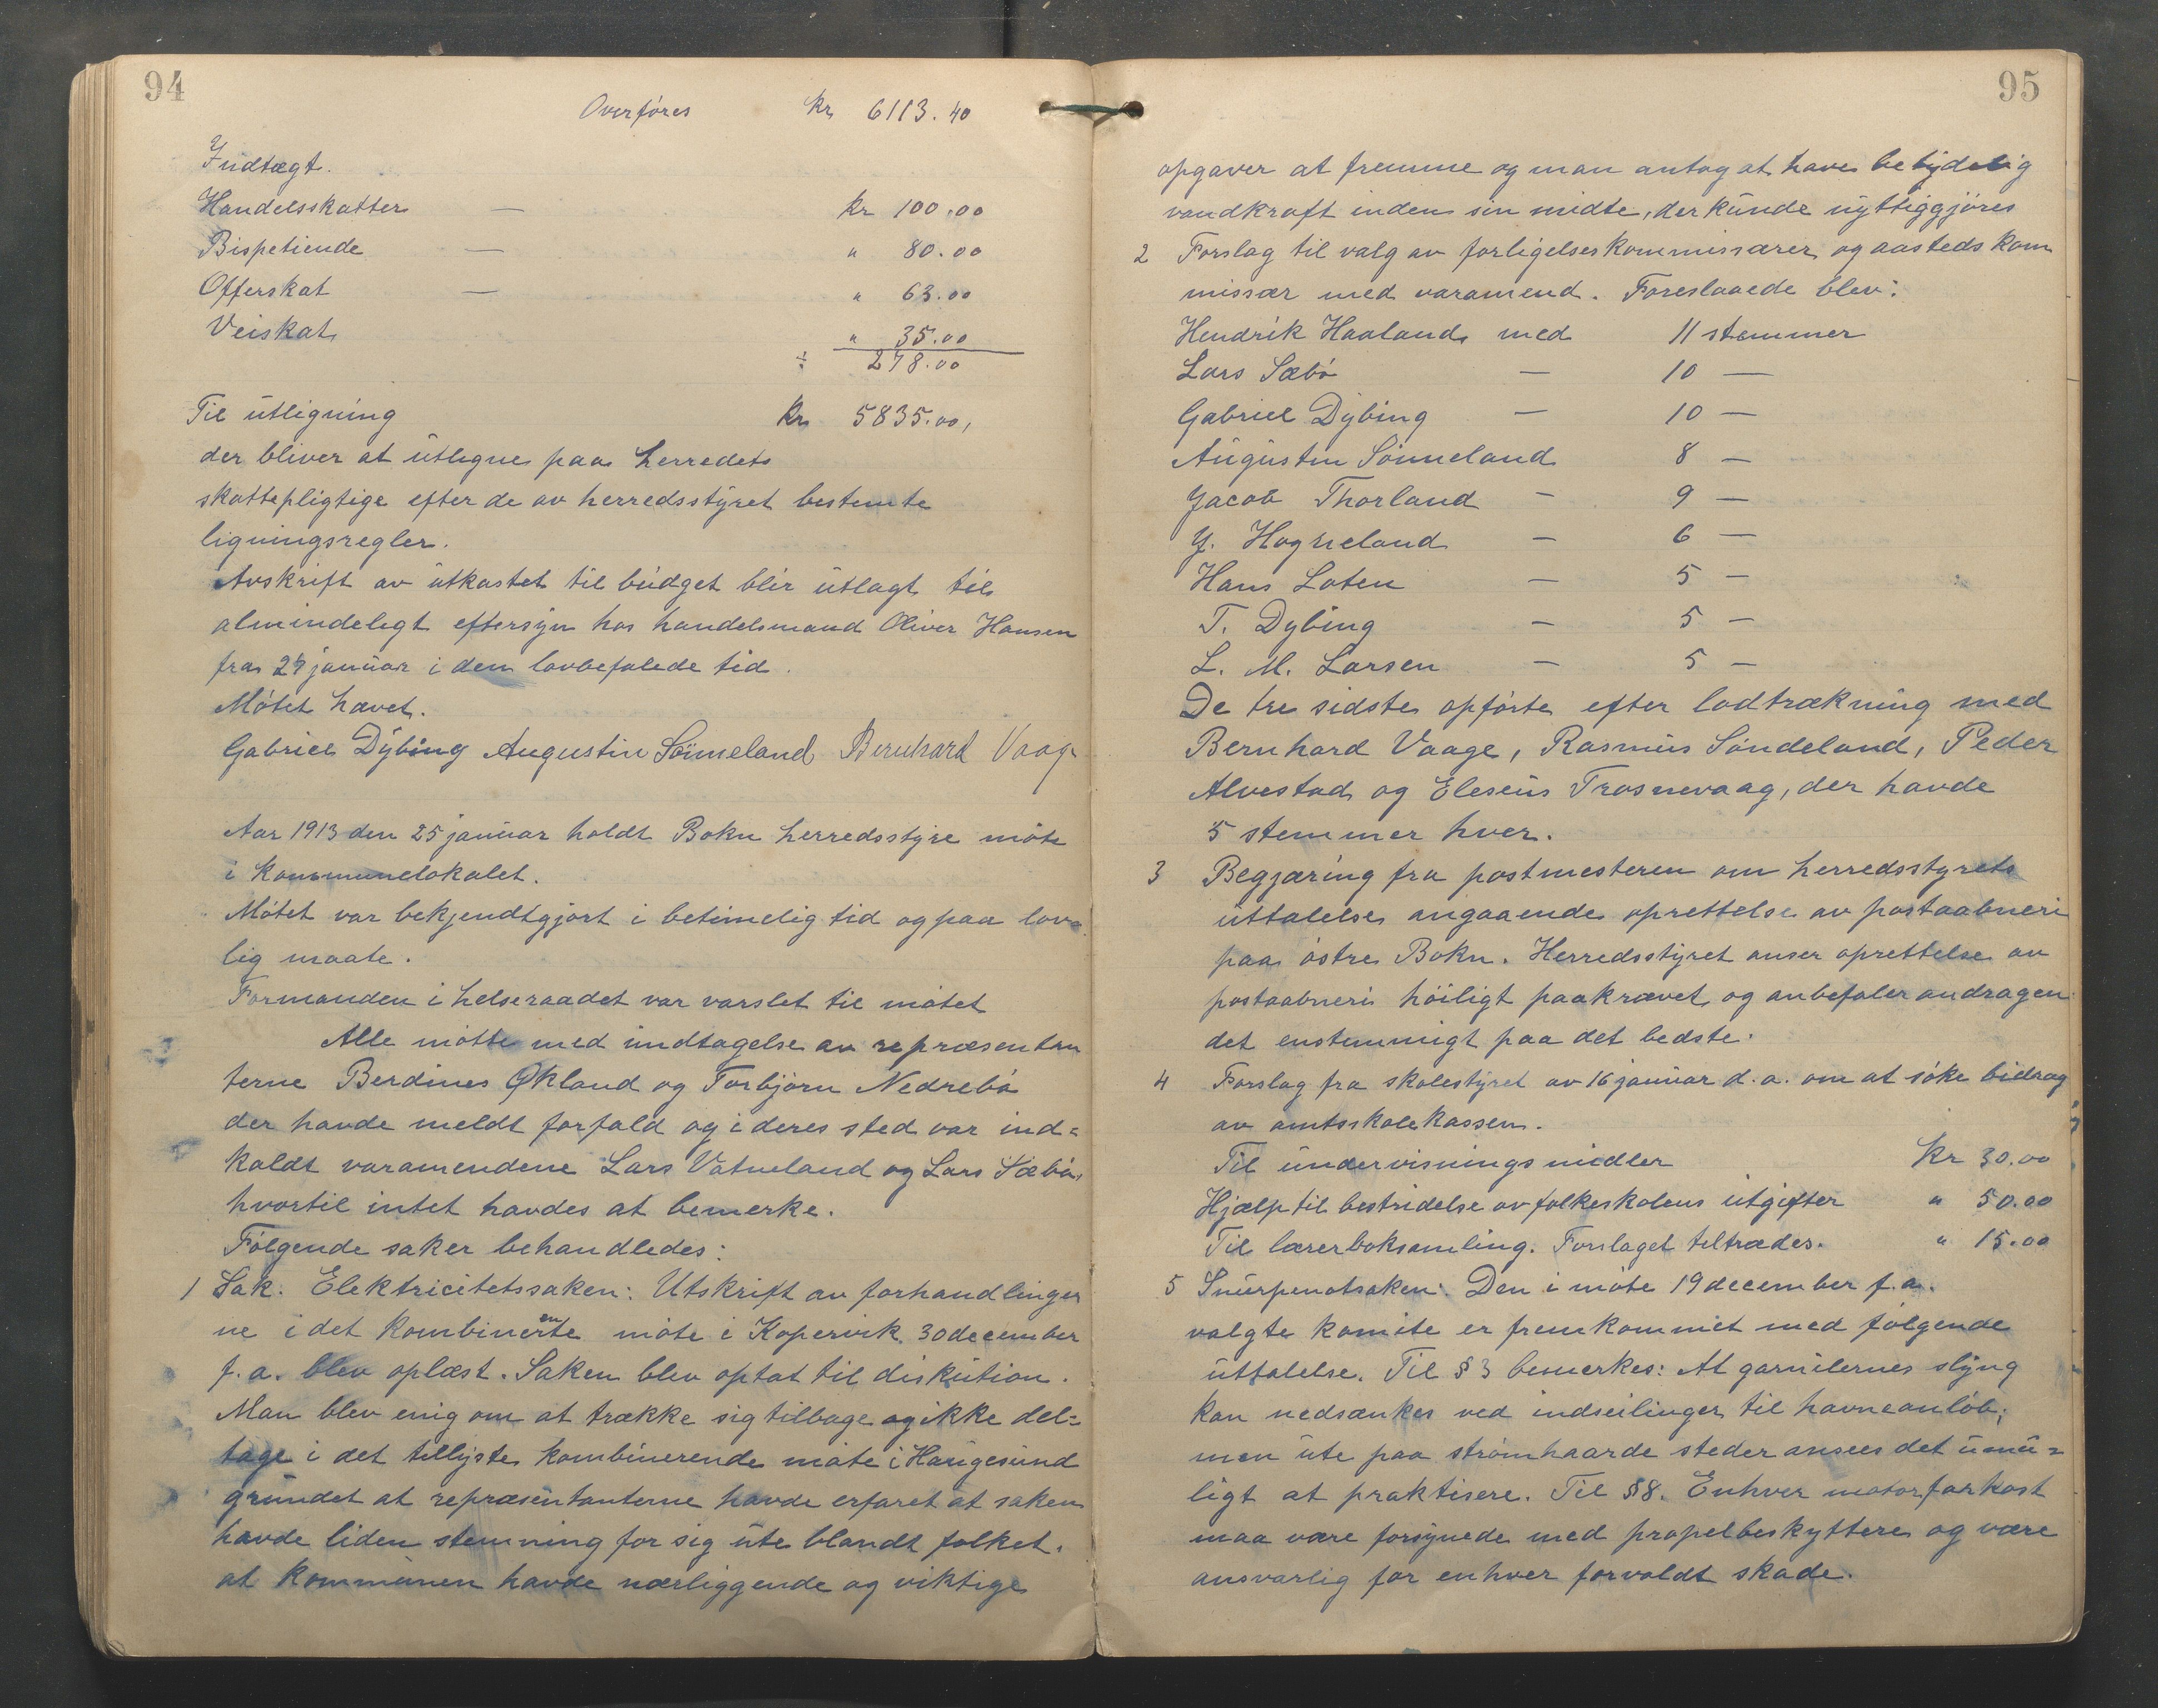 94
Overföres kr 6113.40
Indtægt.
Handelsskatter — kr 100.00
Bispetiende — " 80.00
Offerskat — " 63.00
Veiskat " 35.00
÷ 278.00
Til utligning kr 5835.00,
der bliver at utligne paa herredets
skattepligtige efter de av herredsstyret bestemte
ligningsregler.
Avskrift av utkastet til budget blir utlagt til
almindeligt eftersyn hos handelsmand Oliver Hansen
fra 27 januar i den lovbefalede tid.
Mötet hævet.
Gabriel Dybing Augustin Sönneland Bernhard Vaage
Aar 1913 den 25 januar holdt Bokn herredsstyre möte
i Kommunelokalet.
Mötet var bekjendtgjort i betimelig tid og paa lov-
lig maate.
Formanden i helseraadet var varslet til mötet
Alle mötte med undtagelse av repræsentan
terne Berdines Økland og Torbjörn Nedrebö
der havde meldt forfald og i deres sted var ind=
kaldt varamendene Lars Vatneland og Lars Sæbö,
hvortil intet havdes at bemerke.
Fölgende saker behandledes:
1 Sak. Elektricitetssaken: Utskrift av forhandlinger
ne i det kombinerente möte i Kopervik 30 december
f.a. blev oplæst. Saken blev optat til diskution.
Man blev enig om at trække sig tilbage og ikke del=
tage i det tillyste kombinerende möte i Haugesund
grundet at repræsentanterne havde erfaret at saken
havde liden stemning for sig ute blandt folket.
at kommunen havde nærliggende og viktige
95
opgaver at fremme og man antog at have betydelig
vandkraft inden sin midte, der kunde nyttiggjöres
2 Forslag til valg av forligelseskommissærer og aasteds kom
missær med varamend. Foreslaaede blev:
Hendrik Haaland med 11 stemmer
Lars Sæbö — 10 —
Gabriel Dybing — 10 —
Augustin Sönneland 8 —
Jacob Thorland — 9 —
J. Hogneland — 6 —
Hans Loten — 5 —
T. Dybing — 5 —
L. M. Larsen — 5 —
De tre sidste opförte efter lodtrækning med
Bernhard Vaage, Rasmus Sündeland, Peder
Alvestad og Eleseus Trosnevaag, der havde
5 stemmer hver.
3 Begjæring fra postmesteren om herredsstyrets
uttalelse angaaende oprettelse av postaabneri
paa östre Bokn. Herredsstyret anser oprettelse av
postaabneri höiligt paakrævet og anbefaler andragen
det enstemmigt paa det bedste.
4 Forslag fra skolestyret av 16 januar d.a. om at söke bidrag
av amtsskolekassen.
Til undervisningsmidler kr 30.00
Hjælp til bestridelse av folkeskolens utgifter " 50.00
Til lærerboksamling. Forslaget tiltrædes. " 15.00
5 Snurpenotsaken: Den i möte 19 december f.a.
valgte komite er fremkommet med fölgende
uttalelse. Til § 3 bemerkes: At garnilernes slyng
kan nedsænkes ved indseilinger til havneanlöb;
men ute paa strömhaarde steder ansees det umu=
ligt at praktisere. Til § 8. Enhver motorfarkost
maa være forsynede med propelbeskyttere og være
ansvarlig for enhver forvoldt skade.